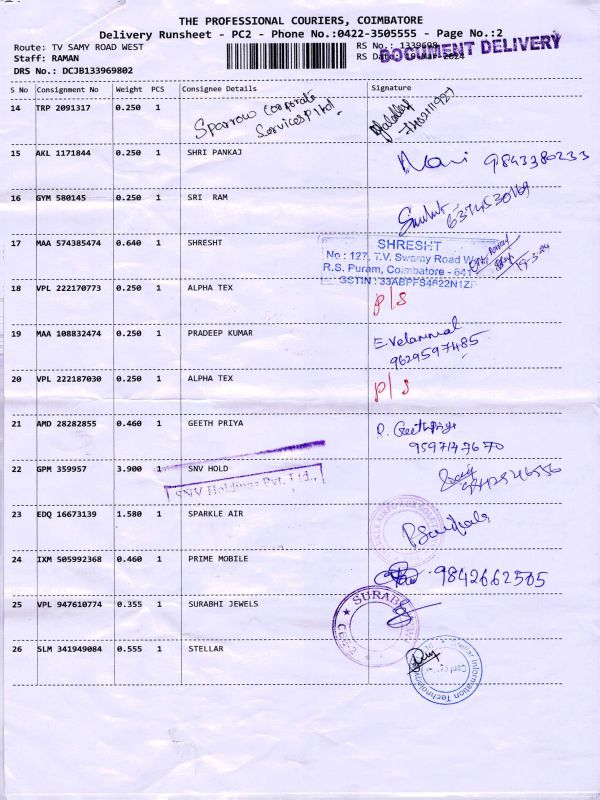 THE PROFESSIONAL COURIERS, COIMBATORE
Delivery Runsheet - PC2 - Phone No.:0422-3505555 - Page No.:2
Route: TV SAMY ROAD WEST
RS No.: 1339698
DOCUMENT DELIVERY
Staff: RAMAN
RS Date: 19-Mar-2024
DRS No.: DCJB133969802
S No Consignment No Weight PCS Consignee Details Signature
14 TRP 2091317 0.250 1 Sparrow Corporate
Services P ltd.
15 AKL 1171844 0.250 1 SHRI PANKAJ Mani 9843380233
16 GYM 580145 0.250 1 SRI RAM 6374530169
17 MAA 574385474 0.640 1 SHRESHT
SHRESHT
No : 127, T.V. Swamy Road W
R.S. Puram, Coimbatore - 641
GSTIN : 33ABPFS4622N1ZF
19-3-24
18 VPL 222170773 0.250 1 ALPHA TEX P/S
19 MAA 108832474 0.250 1 PRADEEP KUMAR E. Velammal
9629597485
20 VPL 222187030 0.250 1 ALPHA TEX P/S
21 AMD 28282855 0.460 1 GEETH PRIYA R. Geethpriya
9597147670
22 GPM 359957 3.900 1 SNV HOLD
SNV Holdings Pvt. Ltd.,
23 EDQ 16673139 1.580 1 SPARKLE AIR
24 IXM 505992368 0.460 1 PRIME MOBILE 9842662505
25 VPL 947610774 0.355 1 SURABHI JEWELS
SURABHI
CBE-2
26 SLM 341949084 0.555 1 STELLAR
Stellar Information Technology